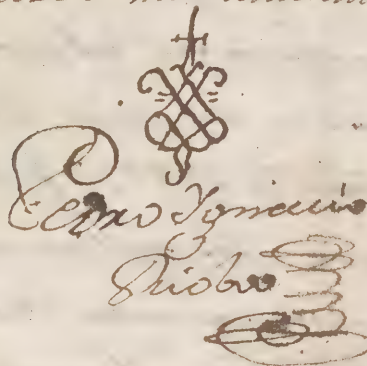 Pedro Ygnacio
Riobo